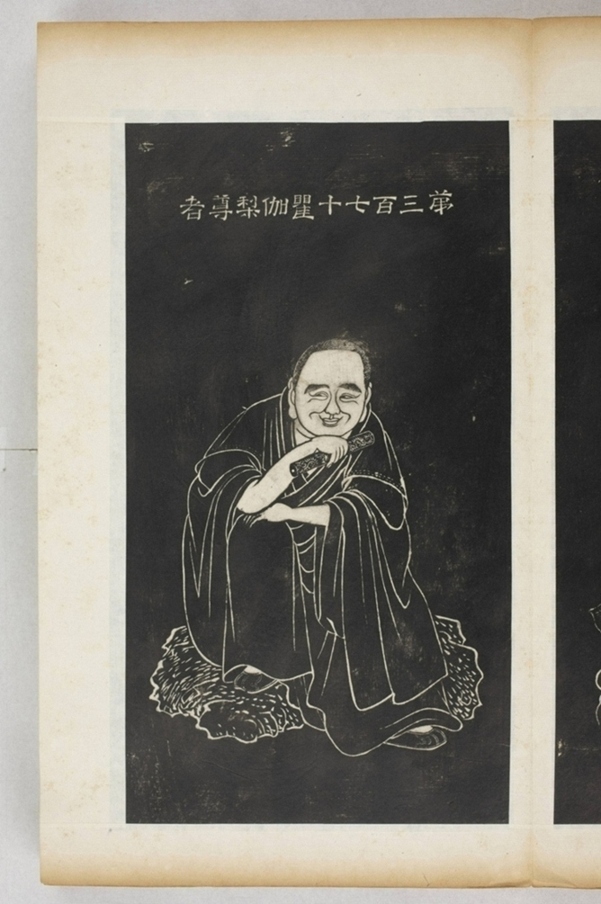 弟三百七十瞿伽梨尊者